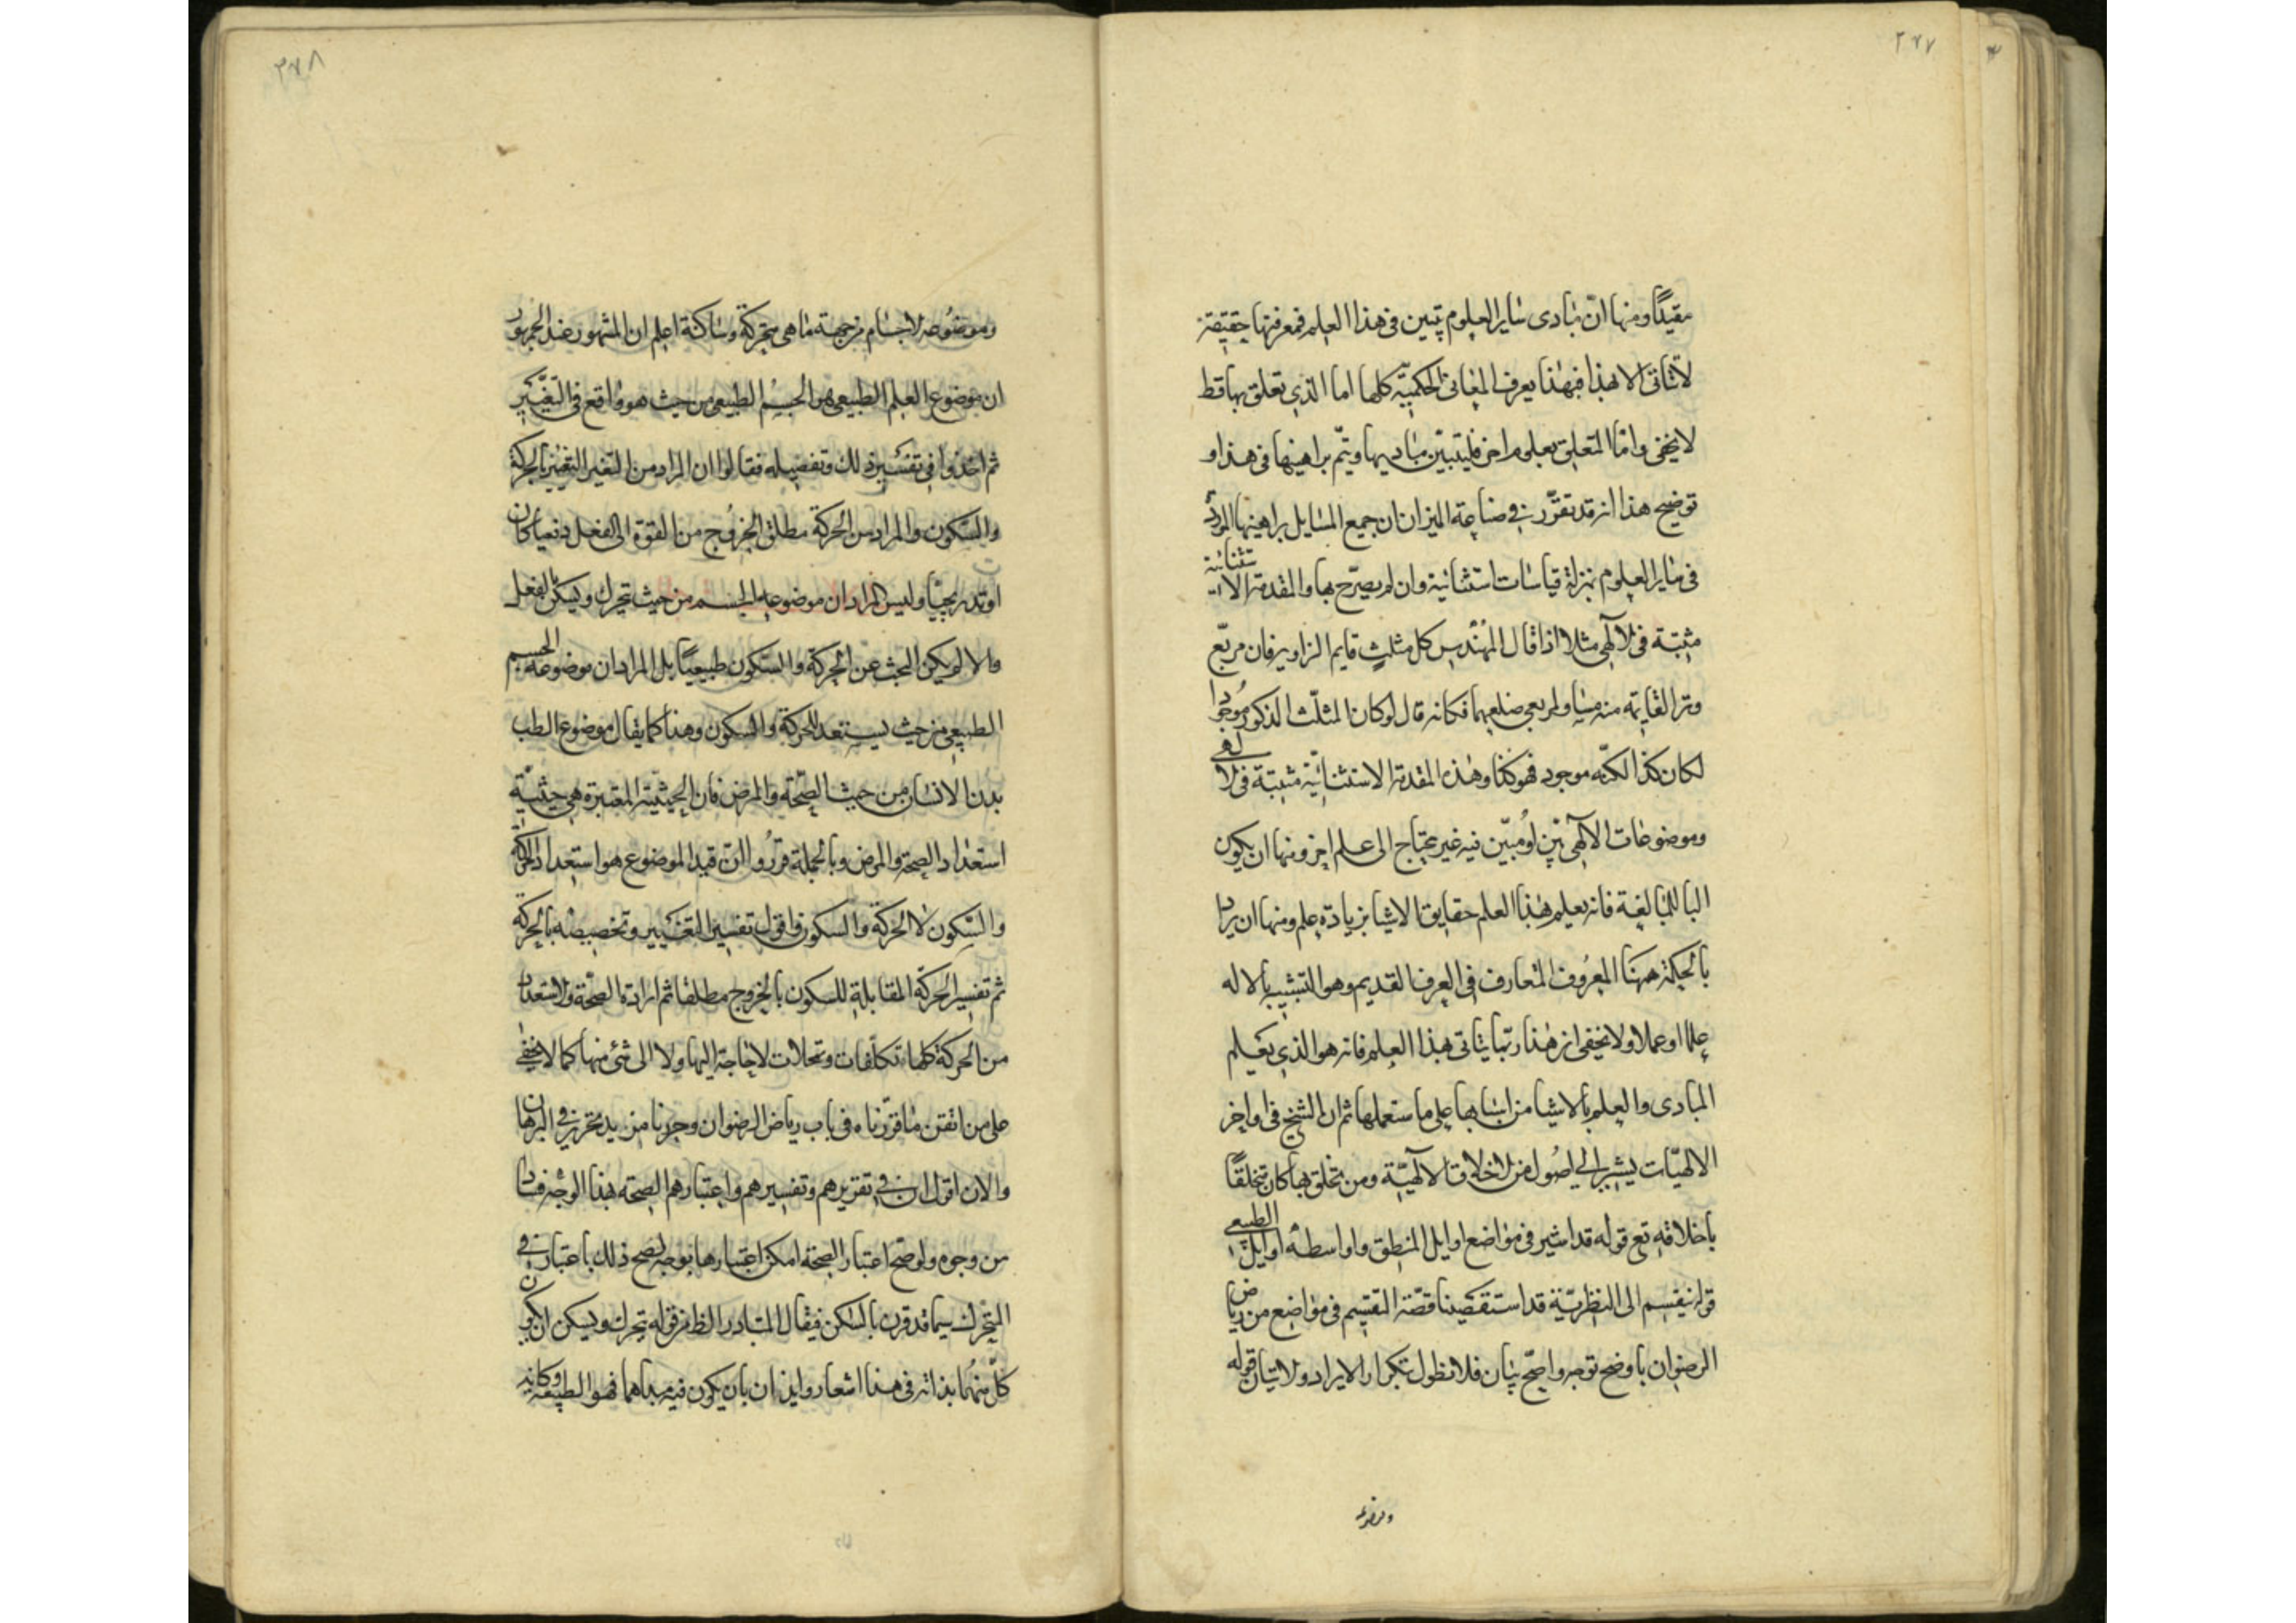 ٢٧٧
مقيدًا ومنها انّ مبادى ساير العلوم تبين فى هذا العلم فمعرفتها حقيقة
لا تتأتى الا بهذا فبهذا يعرف المعانى الحكميّة كلها اما الذى تعلق بها قط
لا يخفى وامّا المتعلق بعلوم اخر فليتبيّن مباديها ويتمّ براهينها فى هذا و
توضيح هذا انه قد تقرّر فى صناعة الميزان ان جميع المسايل براهينها الموردة
فى ساير العلوم بمنزلة قياسات استثنائية وان لم يصرّح بها والمقدمة الاستثنائية
مثبتة فى الالهى مثلا اذا قال المهندس كل مثلث قايم الزاوية فان مربّع
وتر القايمة منه مساو لمربعى ضلعيهما فكانه قال لو كان المثلّث المذكور موجودا
لكان كذا لكنّه موجود فهو كذا وهذه المقدمة الاستثنائيّة مثبتة فى الالهى
وموضوعات الالهى بيّن او مُبيّن فيه غير محتاج الى علم اخر ومنها ان يكون
البا للمبالغة فانه يعلم بهذا العلم حقايق الاشيا بزيادة علم ومنها ان يراد
بالحكمة ههنا المعروف المتعارف فى العرف القديم وهو التشبيه بالاله
علما او عملا ولا يخفى ان هذا ربّما يتاتى بهذا العلم فانه هو الذى يعلم
المبادى والعلم بالاشيا من اسبابها على ما ستعملها ثم ان الشيخ فى اواخر
الالهيّات يشير الى اصُول من الاخلاق الالهيّة ومن تخلق بها كان متخلقًا
باخلاقه تع قوله قد اشير فى مواضع اوايل المنطق واواسطه اوايل الطبيعى
قوله ينقسم الى النظريّة قد استقصينا قصّة التقسيم فى مواضع من رياض
الرضوان باوضح توجه واصحّ بيان فلا نطول بتكرار الايراد ولا تبيان قوله
وموضوعه
٢٧٨
وموضُوعه الاجسام من جهة ما هى متحركة وساكنة اعلم ان المشهور عند الجمهور
ان موضوع العلم الطبيعى هو الجسْم الطبيعى من حيث هو واقع فى التغيّر
ثم اخذوا فى تفسير ذلك وتفصيله فقالوا ان المراد من التغير التغير بالحركة
والسّكون والمراد من الحركة مطلق الخروج من القوّة الى الفعل دفعيا كان
او تدريجيّا وليس المراد ان موضوعه الجسم من حيث تحرك ويسكن بالفعل
والا لم يكن البحث عن الحركة والسّكون طبيعيًا بل المراد ان موضوعه الجسم
الطبيعى من حيث يستعد للحركة والسكون وهذا كما يقال موضوع الطب
بدن الانسان من حيث الصّحة والمرض فان الحيثية المعتبرة هى حيثيّة
استعداد الصحة والمرض وبالجملة قرّروا انّ قيد الموضوع هو استعداد الحركة
والسّكون لا الحركة والسكون واقول تفسير التغيير وتخصيصه بالحركة
ثم تفسير الحركة المقابلة للسكون بالخروج مطلقا ثم ارادة الصحّة والاستعداد
من الحركة كلها تكلّفات وتمحلات لا حاجة اليها ولا الى شئ منها كما لا يخفى
على من اتقن ما قرّرناه فى باب رياض الرضوان وجرنا من يد تحرير فى البرهان
والان اقول ان فى تقريرهم وتفسيرهم واعتبارهم الصحة بهذا الوجْه فسادا
من وجوه ولو صحّ اعتبار الصحة امكن اعتبارها بوجه يصح ذلك باعتبار فى
المتحرك سيما قد قرن بالساكن فيقال المتبادر الظ من قوله تحرك ويسكن ان يكون
كلّ منهُما بذاته فى هذا اشعار وايذان بان يكون فيه مبداهما فهو الطبيعة وكانه